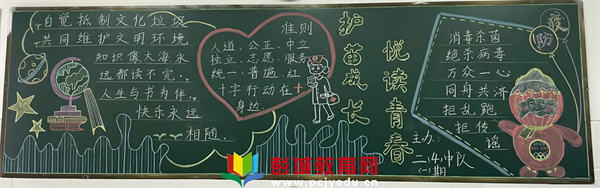 自觉抵制文化垃圾
共同维护文明环境
知识像大海永
远都读不完.
人生与书为伴,
快乐永远
相随
准则
人道、公正、中立、
独立、志愿、服务
统一、普遍、红
十字行动在
身边
护苗成长
悦读青春
主办:
二(4)中队
(一)期
防疫
消毒杀菌
绝杀病毒
万众一心
同舟共济
拒乱跑
拒传
谣
彭城教育网
www.pcjyedu.cn